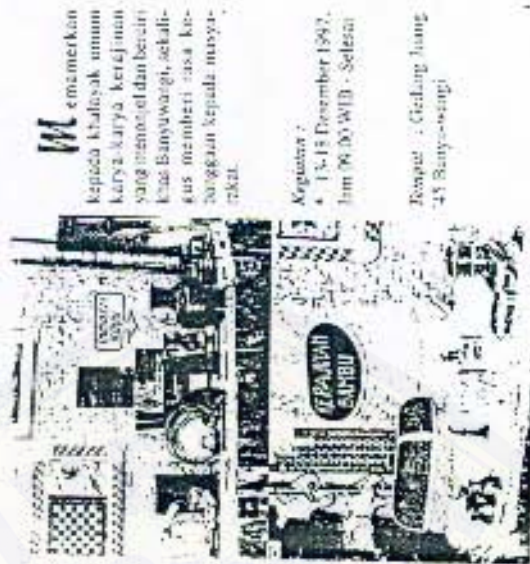 Memamerkan
kepada khalayak umum
karya-karya kerajinan
yang menonjol dan berciri
khas Banyuwangi, sekali-
gus memberi rasa ke-
banggaan kepada masya-
rakat.
Kegiatan :
* 13-18 Desember 1997.
Jam 09.00 WIB - Selesai
Tempat : Gedung Juang
'45 Banyuwangi
KERAJINAN
BAMBU